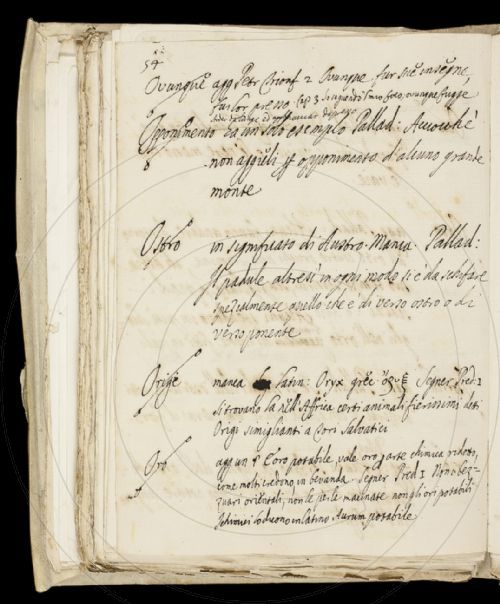 54
Ovunque agg Petr Trionf 2 Ovunque fur sue insegne,
fur lor presso Cap 3
Opponimento ha un solo esemplo Pallad: Acciocchè
non aggieli p opponimento d'alcuno grante
monte
Ostro in significato di Austro. Manca. Pallad:
Il padule altresì in ogni modo si è da schifare
spezialmente quello che è di verso ostro o di
verso ponente
Orige manca latin: Oryx grec ὄρυξ Segner Pred: 1
si trovano là nell'Affrica certi animali fierissimi deti
Origi simiglianti a Tori Salvatici
Oro agg un § L'oro potabile, vale oro p arte chimica ridotto,
come molti credono in bevanda. Segner Pred 1 Non bez-
zuari orientali, non le perle macinate non gli ori potabili
I chimici lo dicono in latino Aurum potabile